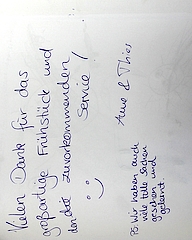 Vielen Dank für das
großartige Frühstück und
den die zuvorkommenden
Service!
:-)
Anne & Thies
PS: Wir haben auch
viele tolle Sachen
gesehen und
gelernt